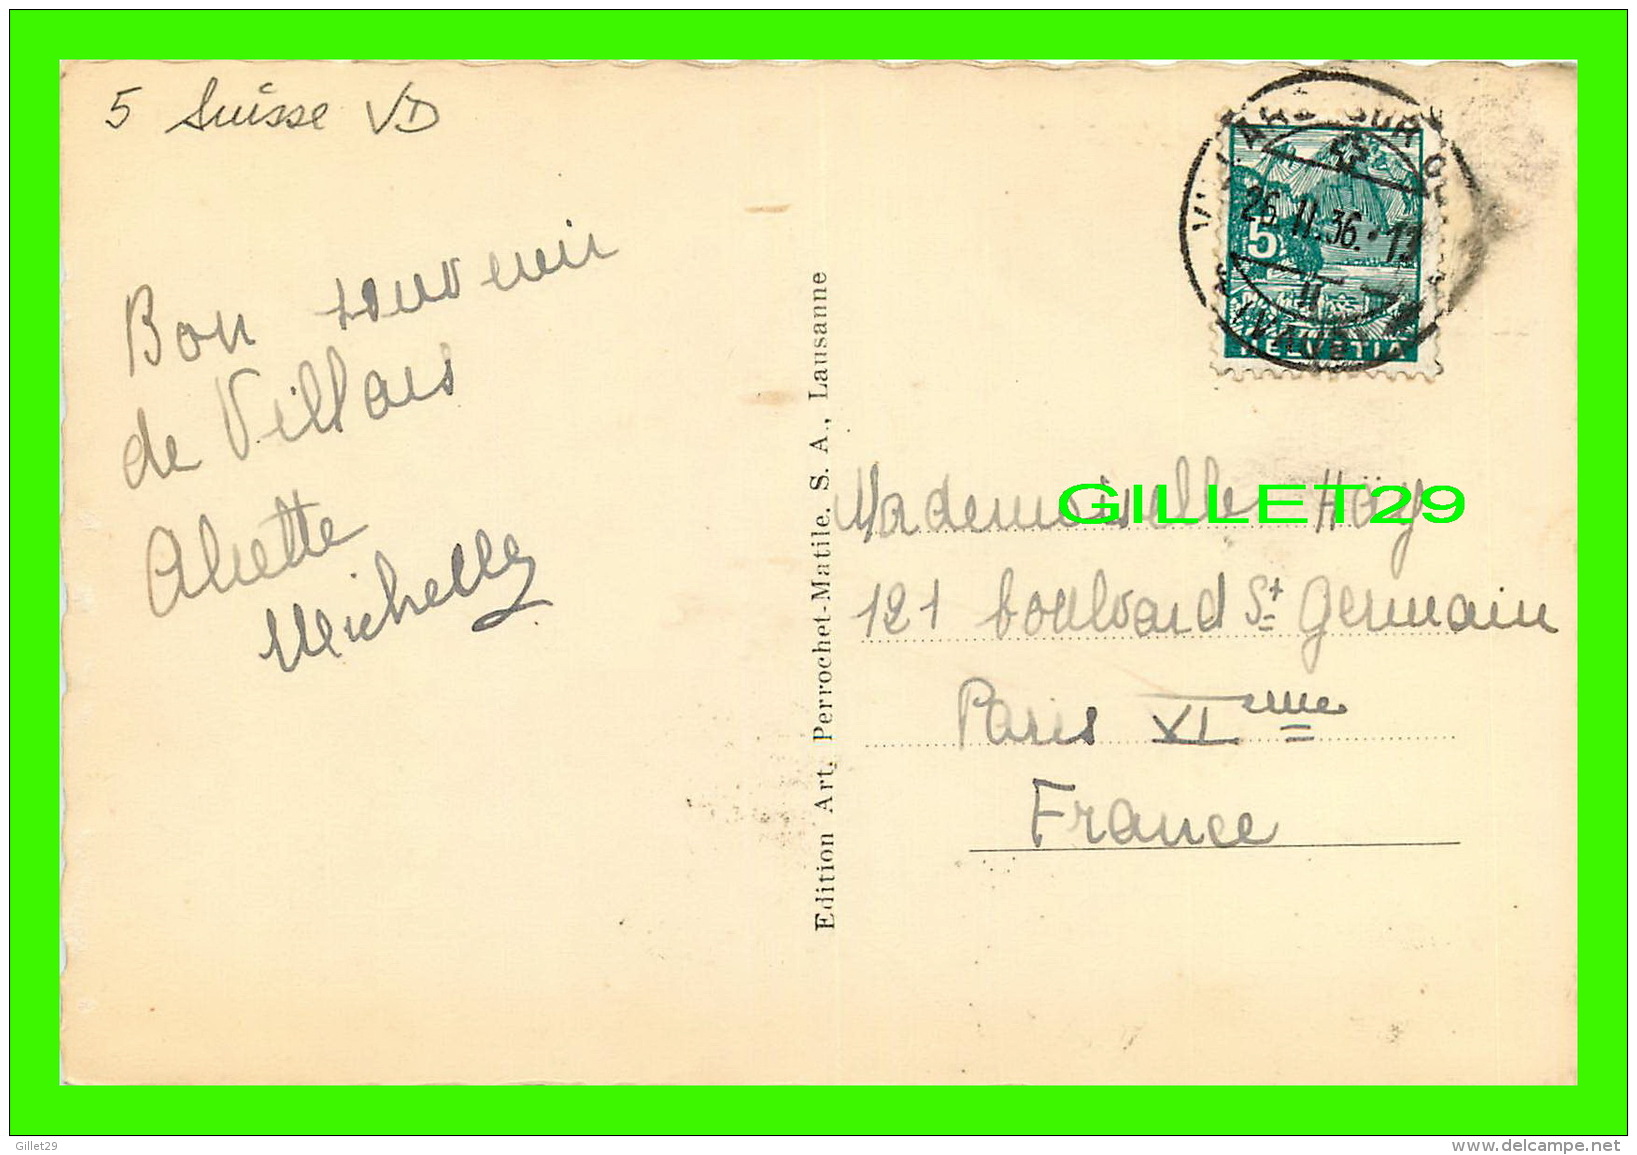 5 Suisse VD
Bon souvenir
de Villars
Michelle
Edition Art. Perrochet-Matile. S. A., Lausanne
VILLARS SUR OL
26.II.36.-13
5
II
(VAUD)
HELVETIA
GILLET29
Mademoiselle Haÿ
121 boulvard St Germain
Paris VIeme
France
Gillet29
www.delcampe.net